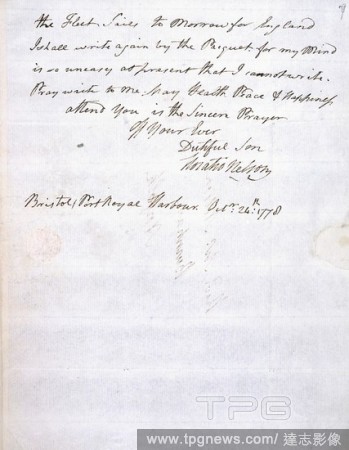 the Fleet Sails to Morrow for England
I shall write again by the Pacquet for my Mind
is so uneasy at present that I cannot write.
Pray write to Me. May Health Peace & Happiness
attend You is the Sincere Prayer
Of Your Ever
Dutiful Son
Horatio Nelson
Bristol, Port Royal Harbour. Octr. 24th. 1778
TPG
www.tpgnews.com / 達志影像